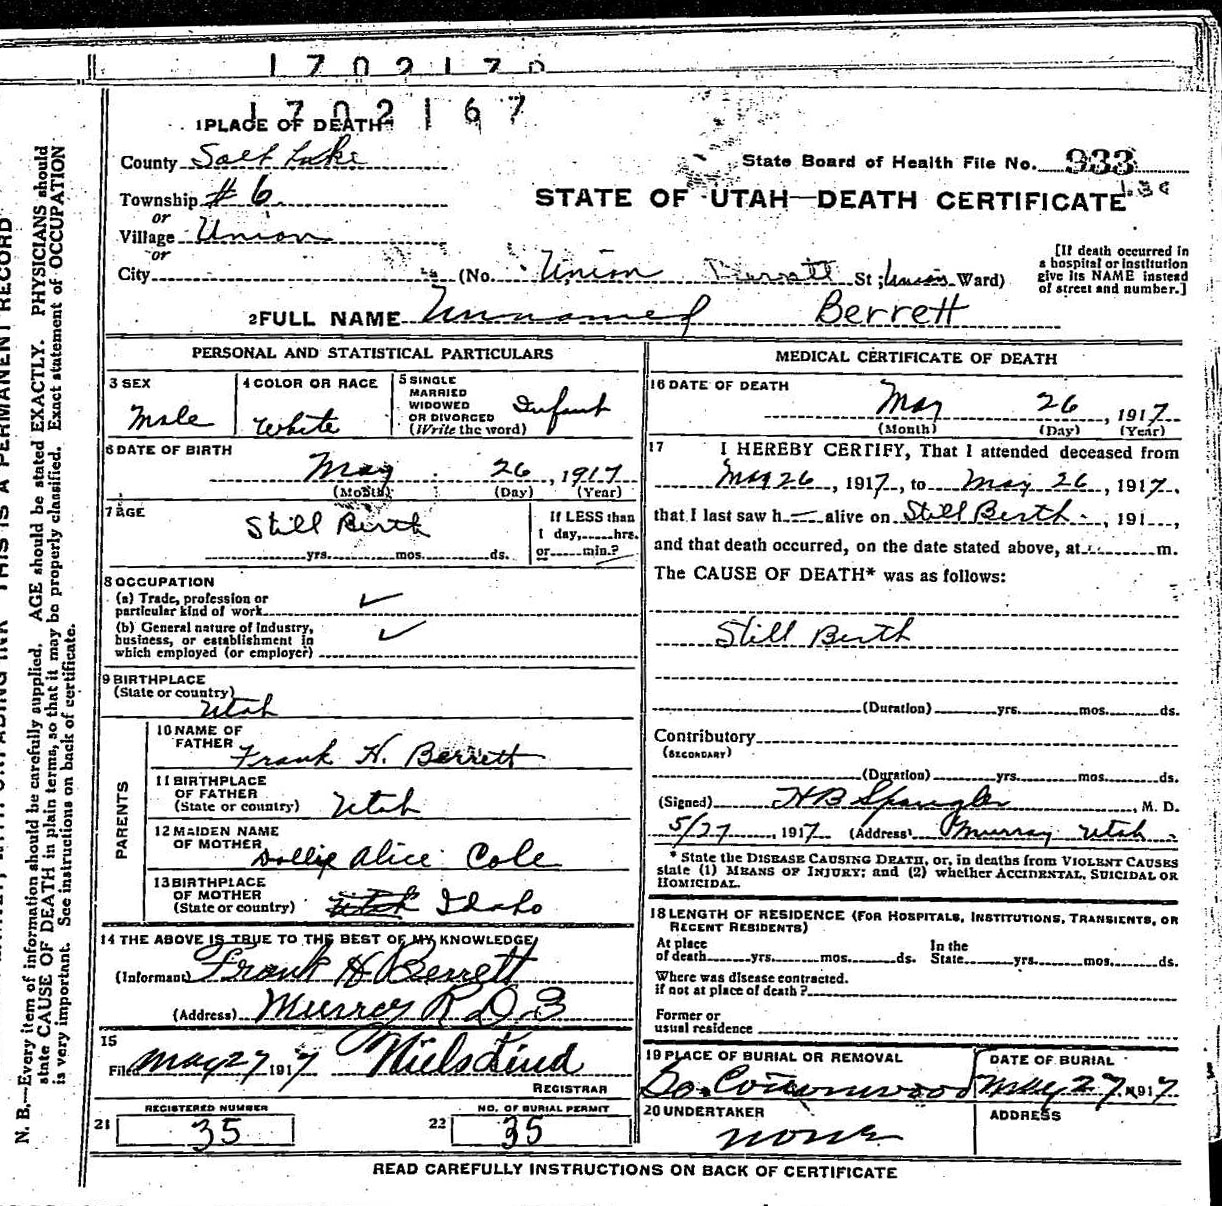 1702170
1702167
1 PLACE OF DEATH
County Salt Lake
State Board of Health File No. 933
Township #6
STATE OF UTAH—DEATH CERTIFICATE
or
Village Union
or
City (No. Union St; Ward)
[If death occurred in
a hospital or institution
give its NAME instead
of street and number.]
2 FULL NAME Unnamed Berrett
PERSONAL AND STATISTICAL PARTICULARS
3 SEX
Male
4 COLOR OR RACE
White
5 SINGLE
MARRIED
WIDOWED
OR DIVORCED
(Write the word)
Infant
6 DATE OF BIRTH
May 26, 1917
(Month) (Day) (Year)
7 AGE
Still Birth
yrs. mos. ds.
If LESS than
1 day, hrs.
or min.?
8 OCCUPATION
(a) Trade, profession or
particular kind of work
(b) General nature of industry,
business, or establishment in
which employed (or employer)
9 BIRTHPLACE
(State or country)
Utah
PARENTS
10 NAME OF
FATHER
Frank H. Berrett
11 BIRTHPLACE
OF FATHER
(State or country) Utah
12 MAIDEN NAME
OF MOTHER
Dollie Alice Cole
13 BIRTHPLACE
OF MOTHER
(State or country) Utah Idaho
14 THE ABOVE IS TRUE TO THE BEST OF MY KNOWLEDGE
(Informant) Frank H Berrett
(Address) Murray R D 3
15
Filed May 27 1917 Niels Lind
REGISTRAR
REGISTERED NUMBER
21 35
NO. OF BURIAL PERMIT
22 35
MEDICAL CERTIFICATE OF DEATH
16 DATE OF DEATH
May 26, 1917
(Month) (Day) (Year)
17 I HEREBY CERTIFY, That I attended deceased from
May 26, 1917, to May 26, 1917,
that I last saw h— alive on Still Birth, 191,
and that death occurred, on the date stated above, at m.
The CAUSE OF DEATH* was as follows:
Still Birth
(Duration) yrs. mos. ds.
Contributory
(SECONDARY)
(Duration) yrs. mos. ds.
(Signed) H B Spangler, M. D.
5/27, 1917 (Address) Murray Utah.
* State the DISEASE CAUSING DEATH, or, in deaths from VIOLENT CAUSES
state (1) MEANS OF INJURY; and (2) whether ACCIDENTAL, SUICIDAL OR
HOMICIDAL.
18 LENGTH OF RESIDENCE (FOR HOSPITALS, INSTITUTIONS, TRANSIENTS, OR
RECENT RESIDENTS)
At place
of death yrs. mos. ds.
In the
State yrs. mos. ds.
Where was disease contracted.
if not at place of death?
Former or
usual residence
19 PLACE OF BURIAL OR REMOVAL
So. Cottonwood
DATE OF BURIAL
May 27, 1917
20 UNDERTAKER
none
ADDRESS
READ CAREFULLY INSTRUCTIONS ON BACK OF CERTIFICATE
THIS IS A PERMANENT RECORD
N. B.—Every item of information should be carefully supplied. AGE should be stated EXACTLY. PHYSICIANS should
state CAUSE OF DEATH in plain terms, so that it may be properly classified. Exact statement of OCCUPATION
is very important. See instructions on back of certificate.